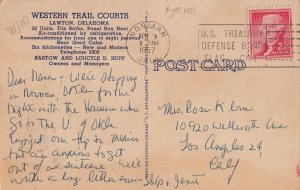 WESTERN TRAIL COURTS
LAWTON, OKLAHOMA
20 Units, Tile Baths, Panel Ray Heat
Air-conditioned by refrigeration.
Accommodations for from one to eight persons
Good Cafes
Six kitchenettes — New and Modern
Telephone 1909
BARTOW AND LOUCYLE D. HUFF
Owners and Managers
NORMAN
1957
U. S. TREASURY
DEFENSE BOND
2¢
POST CARD
Dear Mama - We're stopping
in Norman Okla for the
night with the
go to the U of Okla.
Enjoyed our trip to Mexico
but are anxious to get
out of a suitcase. Will
write a long letter soon -
Skip & Janet
Mrs. Rose Klein
10920 Wellworth Ave
Los Angeles 24
Calif